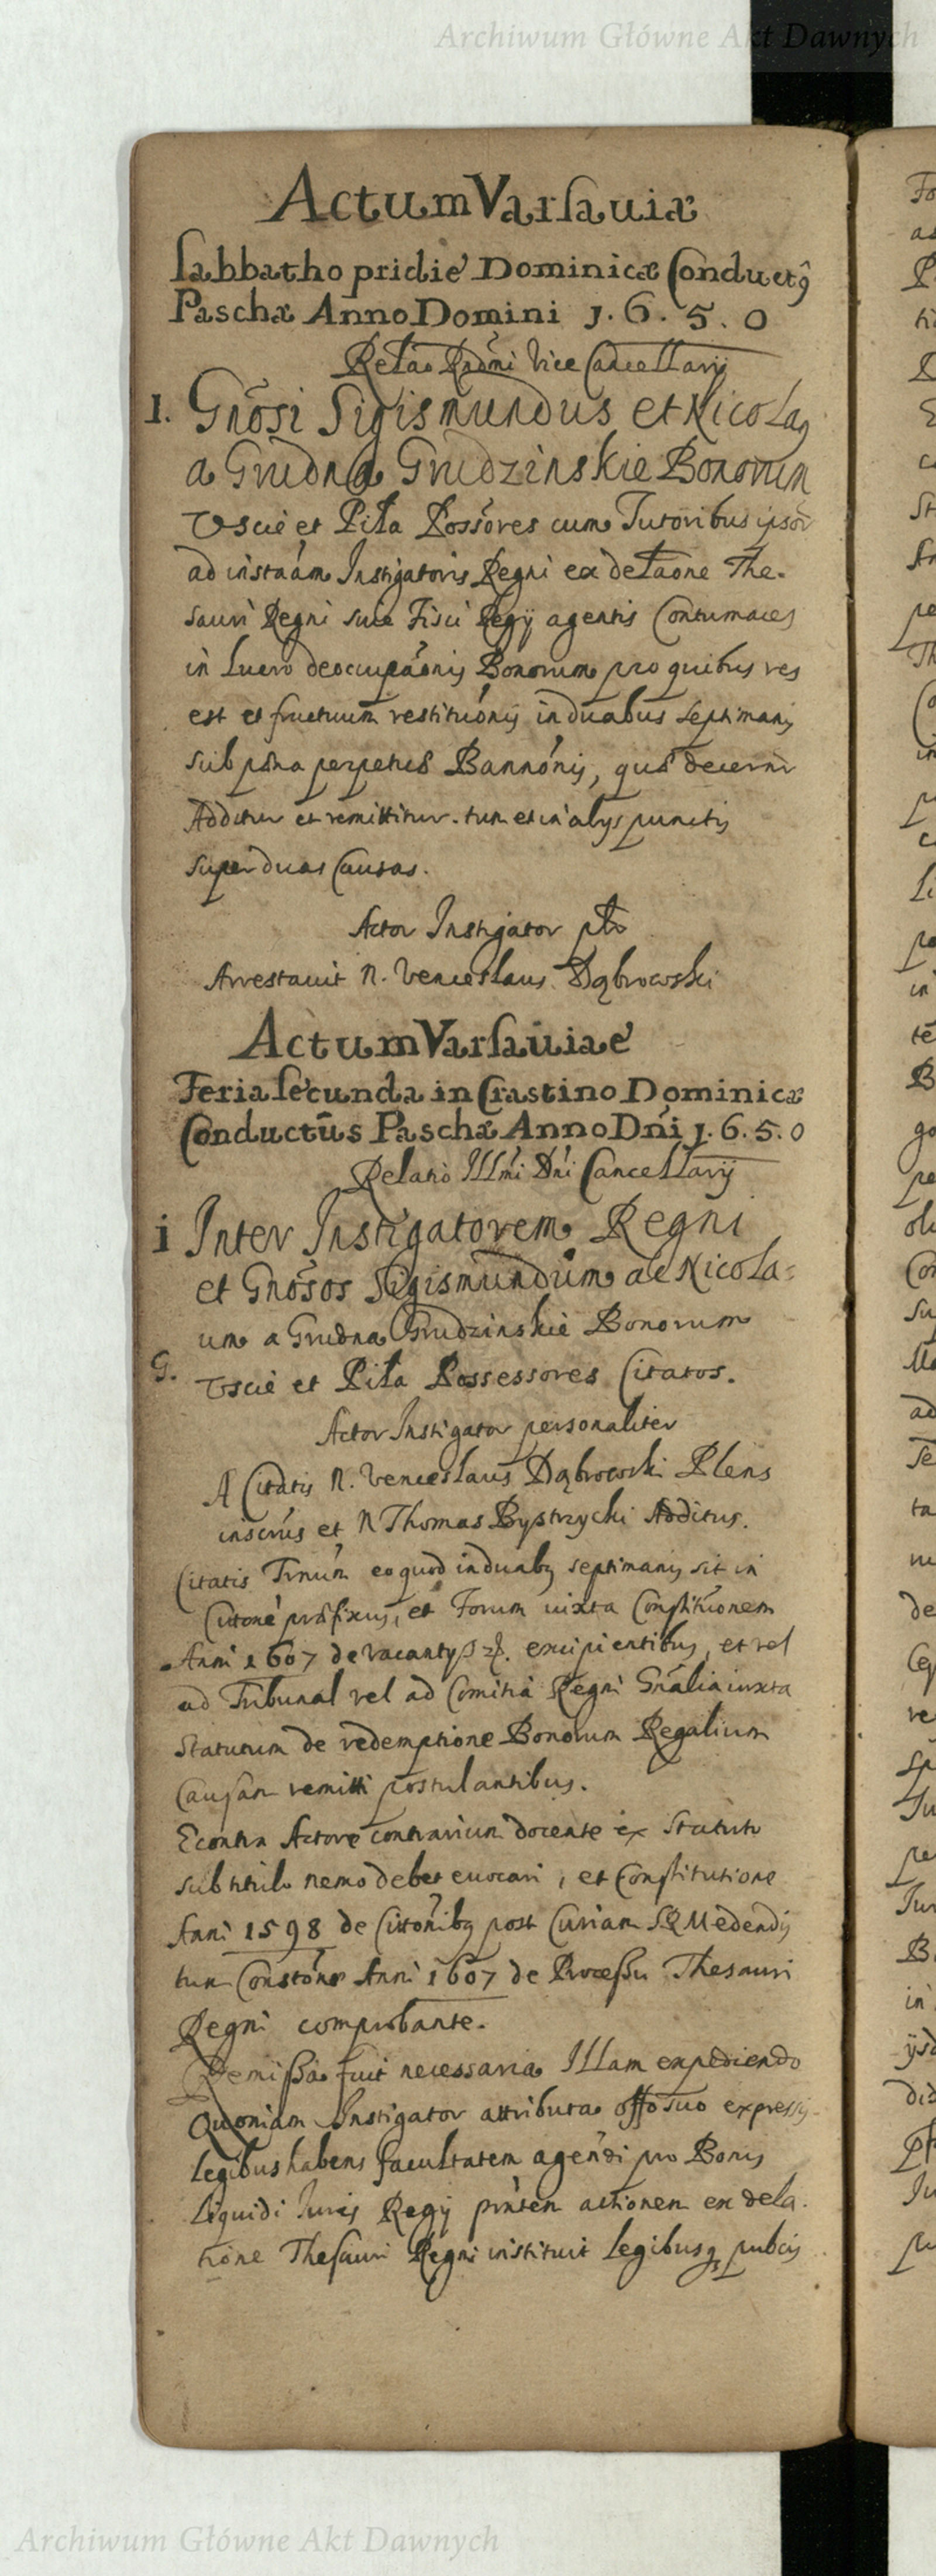 Archiwum Główne Akt Dawnych
Actum Varsauiæ
sabbatho pridie Dominicæ Conductꝰ
Paschæ Anno Domini 1.6.5.0
Relao Rndmi Vice Cancellarij
I. Gnosi Sigismundus et Nicolaꝰ
a Grudna Grudzinskie Bonorum
Uscie et Piła Possores cum Tutoribus ipsor
ad instnam Instigatoris Regni ex delaone The-
sauri Regni siue Fisci Regij agentis Contumaces
in Lucro deoccupaonis Bonorum pro quibus res
est et fructuum restitutionis in duabus septimanis
sub pœna perpetuæ Bannonis, quæ decernr
Additur et remittitur. tum et in alijs punctis
super duas Causas.
Actor Instigator plr
Arrestauit N. Venceslaus Dąbrowski
Actum Varsauiae
Feria secunda in Crastino Dominicæ
Conductus Paschæ Anno Dni 1.6.5.0
Relatio Illmi Dni Cancellarij
i Inter Instigatorem Regni
et Gnosos Sigismundum ac Nicola=
um a Grudna Grudzinskie Bonorum
G.
Uscie et Piła Possessores Citatos.
Actor Instigator personaliter
A Citatis N. Venceslaus Dąbrowski Plens
inscrius et N Thomas Bystrzycki Additus.
Citatis Trnum eo quod in duabꝫ septimanis sit in
Citone præfixus, et Forum iuxta Constituonem
Anni 1607 de vacantijs excipientibus, et vel
ad Tribunal vel ad Comitia Regni Gnalia iuxta
Statutum de redemptione Bonorum Regalium
Causam remitti postulantibus.
Econtra Actore contrarium docente ex Statuto
sub titulo nemo debet euocari, et Constitutione
Anni 1598 de Citonibꝫ post Curiam SRM edendis
tum Constone Anni 1607 de Processu Thesauri
Regni comprobante.
Remissa fuit necessaria Illam expediendo
Quoniam Instigator attributa offo suo expressis
legibus habens facultatem agendi pro Bonis
liquidi Iuris Regij pntem actionem ex dela-
tione Thesauri Regni instituit legibusqꝫ pubcis
Archiwum Główne Akt Dawnych